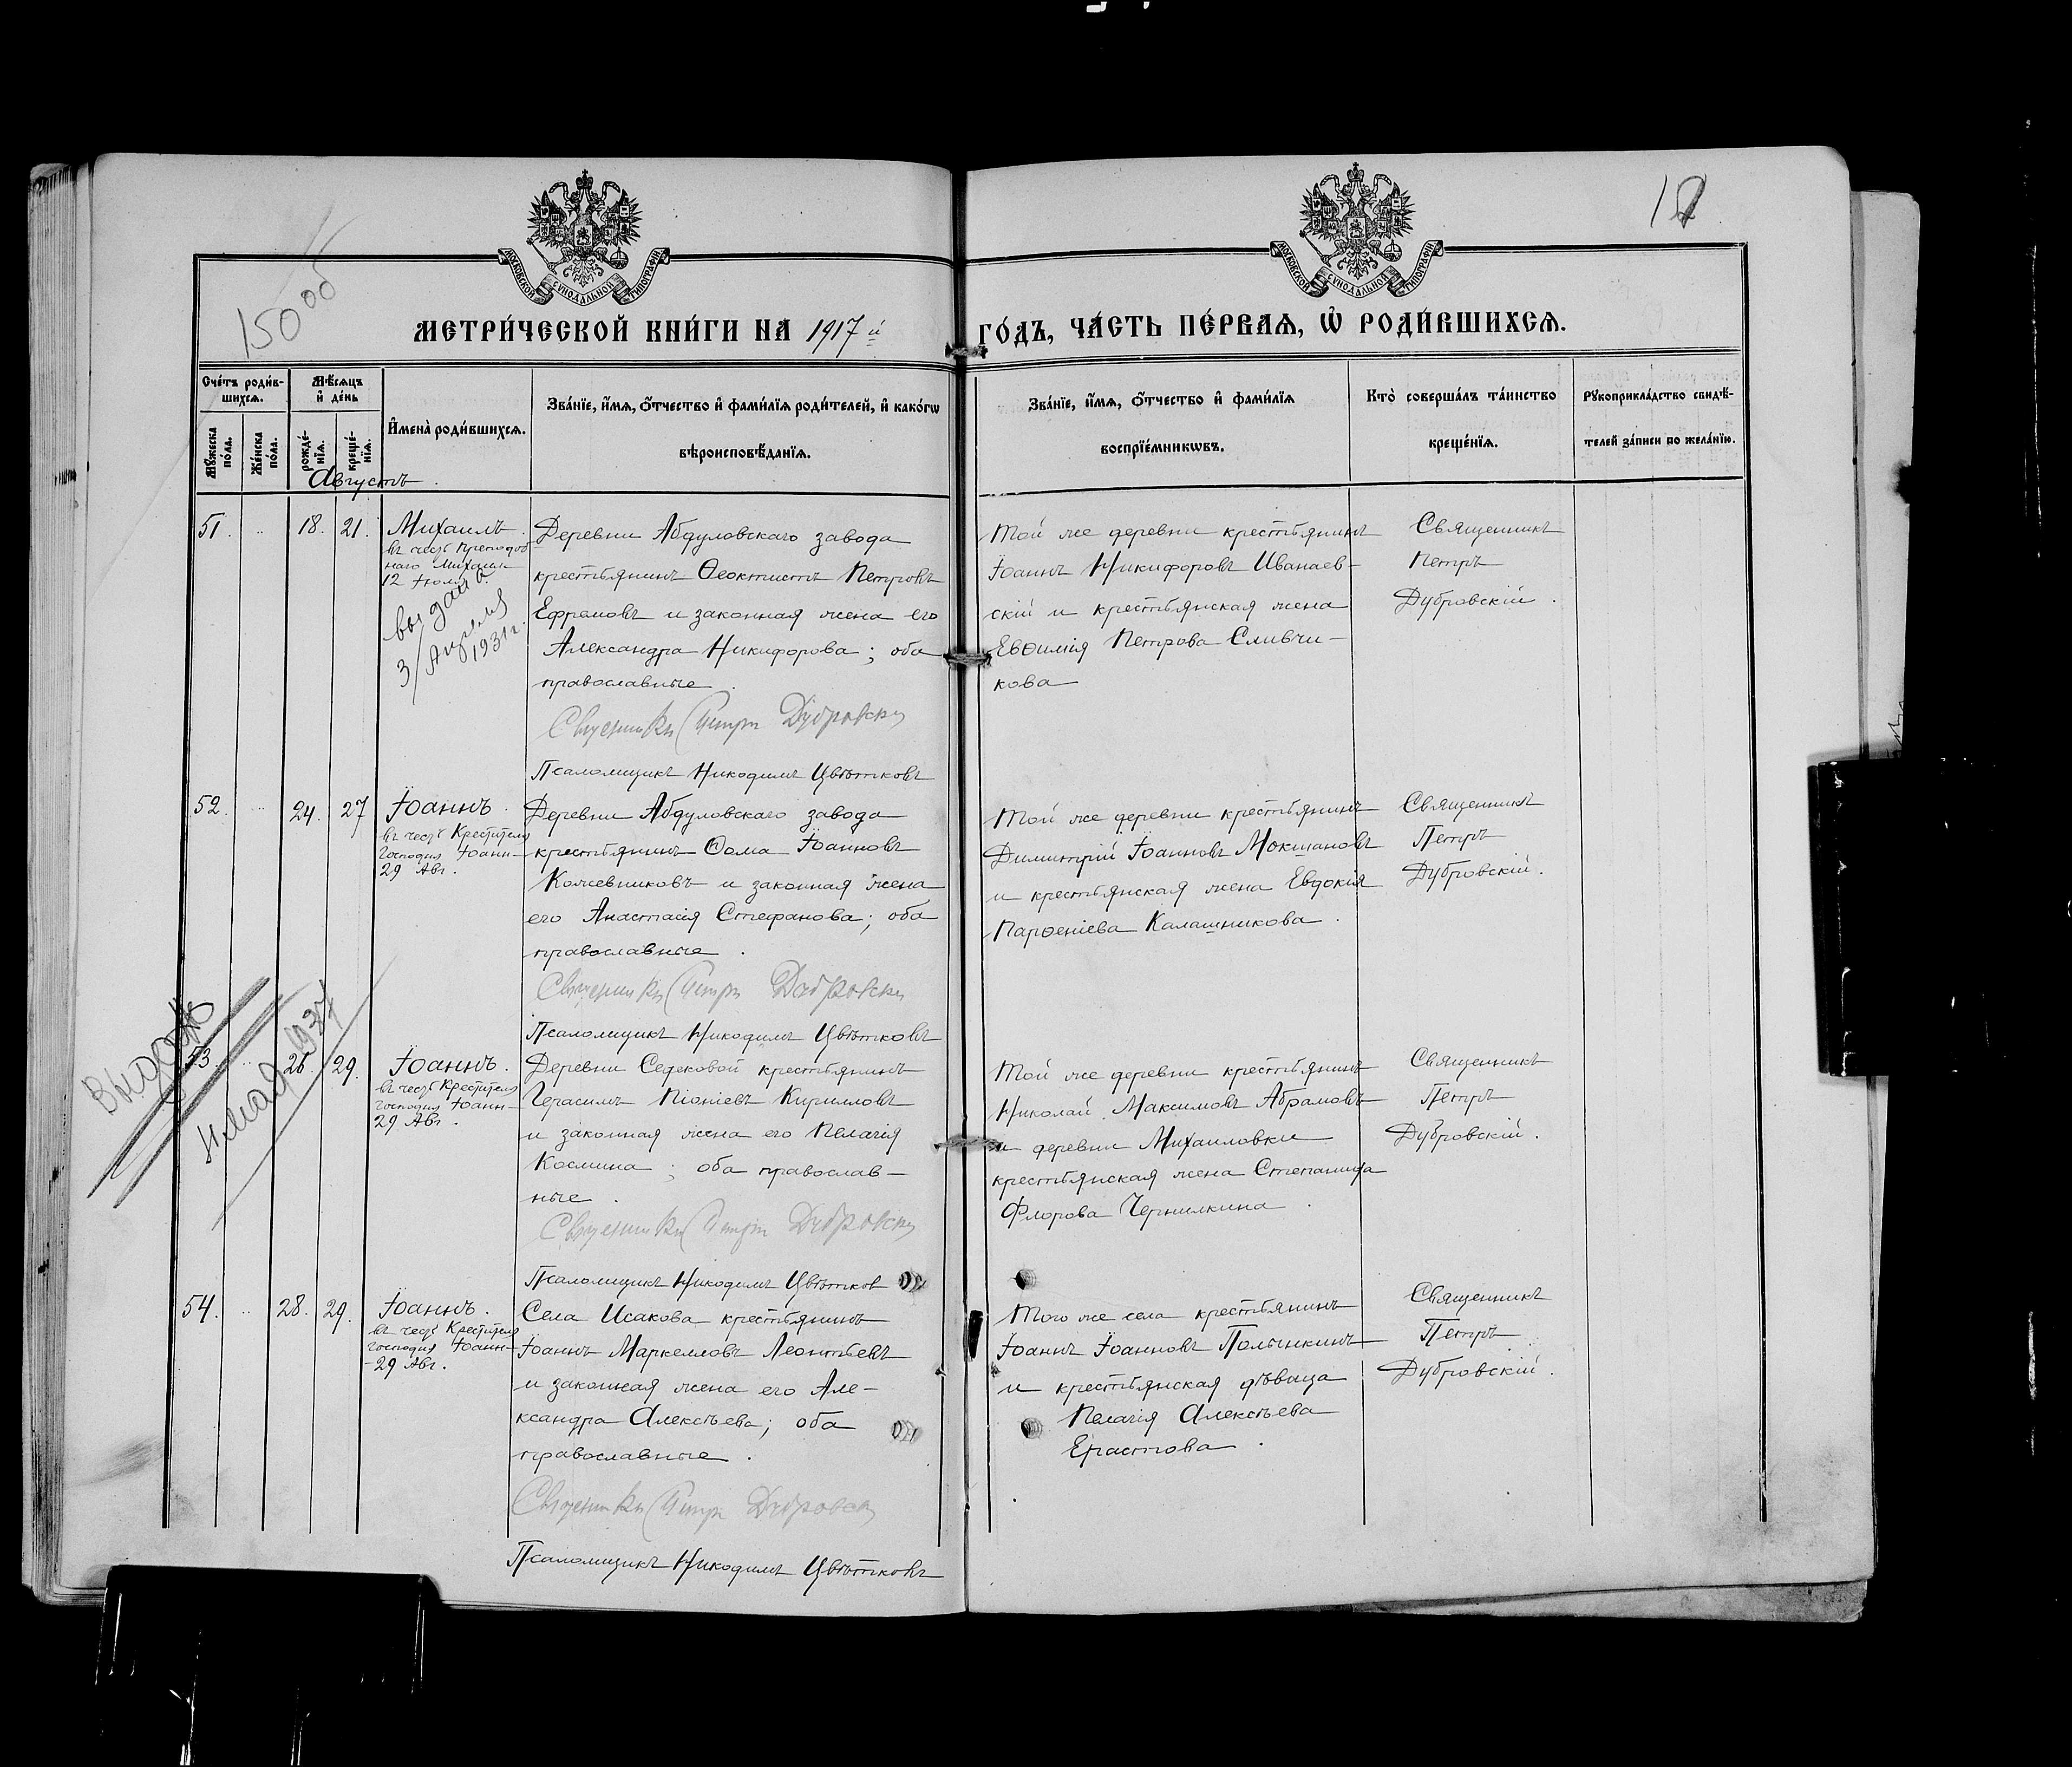 18
МОСКОВСКОЙ СУНОДАЛЬНОЙ ТИПОГРАФІИ
МОСКОВСКОЙ СУНОДАЛЬНОЙ ТИПОГРАФІИ
150 00
МЕТРИ́ЧЕСКОЙ КНИ́ГИ НА 1917 й ГО́ДЪ, ЧА́СТЬ ПЕ́РВАѦ, Ѡ҆ РОДИ́ВШИХСѦ.
Сче́тъ роди́в-
шихсѧ.
Мѣ́сѧцъ
и҆ де́нь
Мꙋ́жеска
по́ла.
Же́нска
по́ла.
рожде́-
нїѧ.
креще́-
нїѧ.
И҆мена̀ роди́вшихсѧ.
Зва́нїе, и҆́мѧ, ѻ҆́тчество и҆ фами́лїѧ роди́телей, и҆ како́гѡ
вѣроисповѣ́данїѧ.
Зва́нїе, и҆́мѧ, ѻ҆́тчество и҆ фами́лїѧ
воспрїе́мникѡвъ.
Кто̀ соверша́лъ та́инство
креще́нїѧ.
Рꙋкоприкла́дство свидѣ́-
телей за́писи по жела́нїю.
Августъ.
51. .. 18. 21. Михаилъ.
въ честь преподоб-
наго Михаила
12 Іюля
выдан
3/Апреля
1931 г.
Деревни Абдуловскаго завода
крестьянинъ Ѳеоктистъ Петровъ
Ефремовъ и законная жена его
Александра Никифорова; оба
православные.
Священникъ Петръ Дубровскій
Псаломщикъ Никодимъ Цвѣтковъ
Той же деревни крестьянинъ
Іоаннъ Никифоровъ Иванаев-
скій и крестьянская жена
Евѳимія Петрова Сливчи-
кова
Священникъ
Петръ
Дубровскій.
52. .. 24. 27 Іоаннъ.
въ честь Крестителя
Господня Іоанн-
29 Авг.
Деревни Абдуловскаго завода
крестьянинъ Ѳома Іоанновъ
Кожевниковъ и законная жена
его Анастасія Стефанова; оба
православные.
Священникъ Петръ Дубровскій
Псаломщикъ Никодимъ Цвѣтковъ
Той же деревни крестьянинъ
Димитрій Іоанновъ Мокшановъ
и крестьянская жена Евдокія
Парѳеніева Калашникова.
Священникъ
Петръ
Дубровскій.
53 .. 26. 29. Іоаннъ.
въ честь Крестителя
Господня Іоанн-
29 Авг.
Деревни Седяковой крестьянинъ
Герасимъ Піоніевъ Кирилловъ
и законная жена его Пелагія
Космина; оба православ-
ные.
Священникъ Петръ Дубровскій
Псаломщикъ Никодимъ Цвѣтков
Той же деревни крестьянинъ
Николай Максимовъ Абрамовъ
и деревни Михаиловки
крестьянская жена Степанида
Флорова Чернилкина.
Священникъ
Петръ
Дубровскій.
54. .. 28. 29. Іоаннъ.
въ честь Крестителя
Господня Іоанн-
-29 Авг.
Села Исакова крестьянинъ
Іоаннъ Маркелловъ Леонтьевъ
и законная жена его Але-
ксандра Алексѣева; оба
православные.
Священникъ Петръ Дубровскій
Псаломщикъ Никодимъ Цвѣтковъ
Того же села крестьянинъ
Іоаннъ Іоанновъ Полынкинъ
и крестьянская дѣвица
Пелагія Алексѣева
Ерастова.
Священникъ
Петръ
Дубровскій.